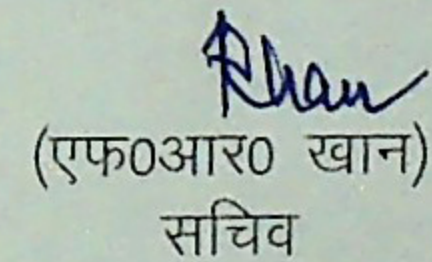 Rhan
(एफ0आर0 खान)
सचिव